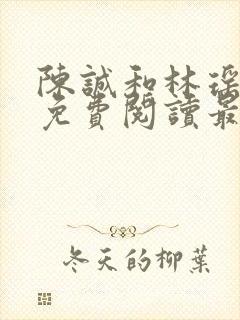 陳誠和林瑤
免費閱讀最
冬天的柳葉